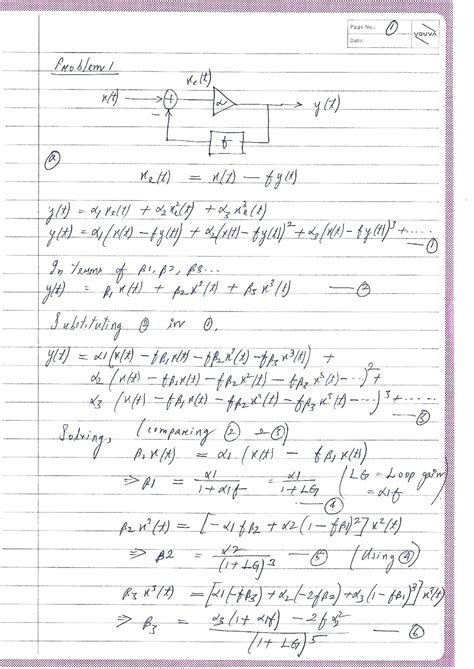 Page No.: 1
Date:
YOUVA
Problem 1
xe(t)
x(t) → + α → y(t)
−
f
(a)
xe(t) = x(t) − fy(t)
y(t) = α1xe(t) + α2xe²(t) + α3xe³(t)
y(t) = α1(x(t) − fy(t)) + α2(x(t) − fy(t))² + α3(x(t) − fy(t))³ + ..... — (1)
In terms of β1, β2, β3...
y(t) = β1x(t) + β2x²(t) + β3x³(t) — (2)
Substituting (2) in (1),
y(t) = α1(x(t) − fβ1x(t) − fβ2x²(t) − fβ3x³(t)) +
α2 (x(t) − fβ1x(t) − fβ2x²(t) − fβ3x³(t) − ...)² +
α3 (x(t) − fβ1x(t) − fβ2x²(t) − fβ3x³(t) − ...)³ + ..... — (3)
Solving, (comparing (2) & (3))
β1x(t) = α1 (x(t) − fβ1x(t))
⇒ β1 = α1/(1 + α1f) = α1/(1 + LG) — (4) (LG = Loop gain = α1f)
β2x²(t) = [−α1fβ2 + α2(1 − fβ1)²] x²(t)
⇒ β2 = α2/(1 + LG)³ — (5) (Using (4))
β3x³(t) = [α1(−fβ3) + α2(−2fβ2) + α3(1 − fβ1)³] x³(t)
⇒ β3 = (α3(1 + α1f) − 2fα2²)/(1 + LG)⁵ — (6)